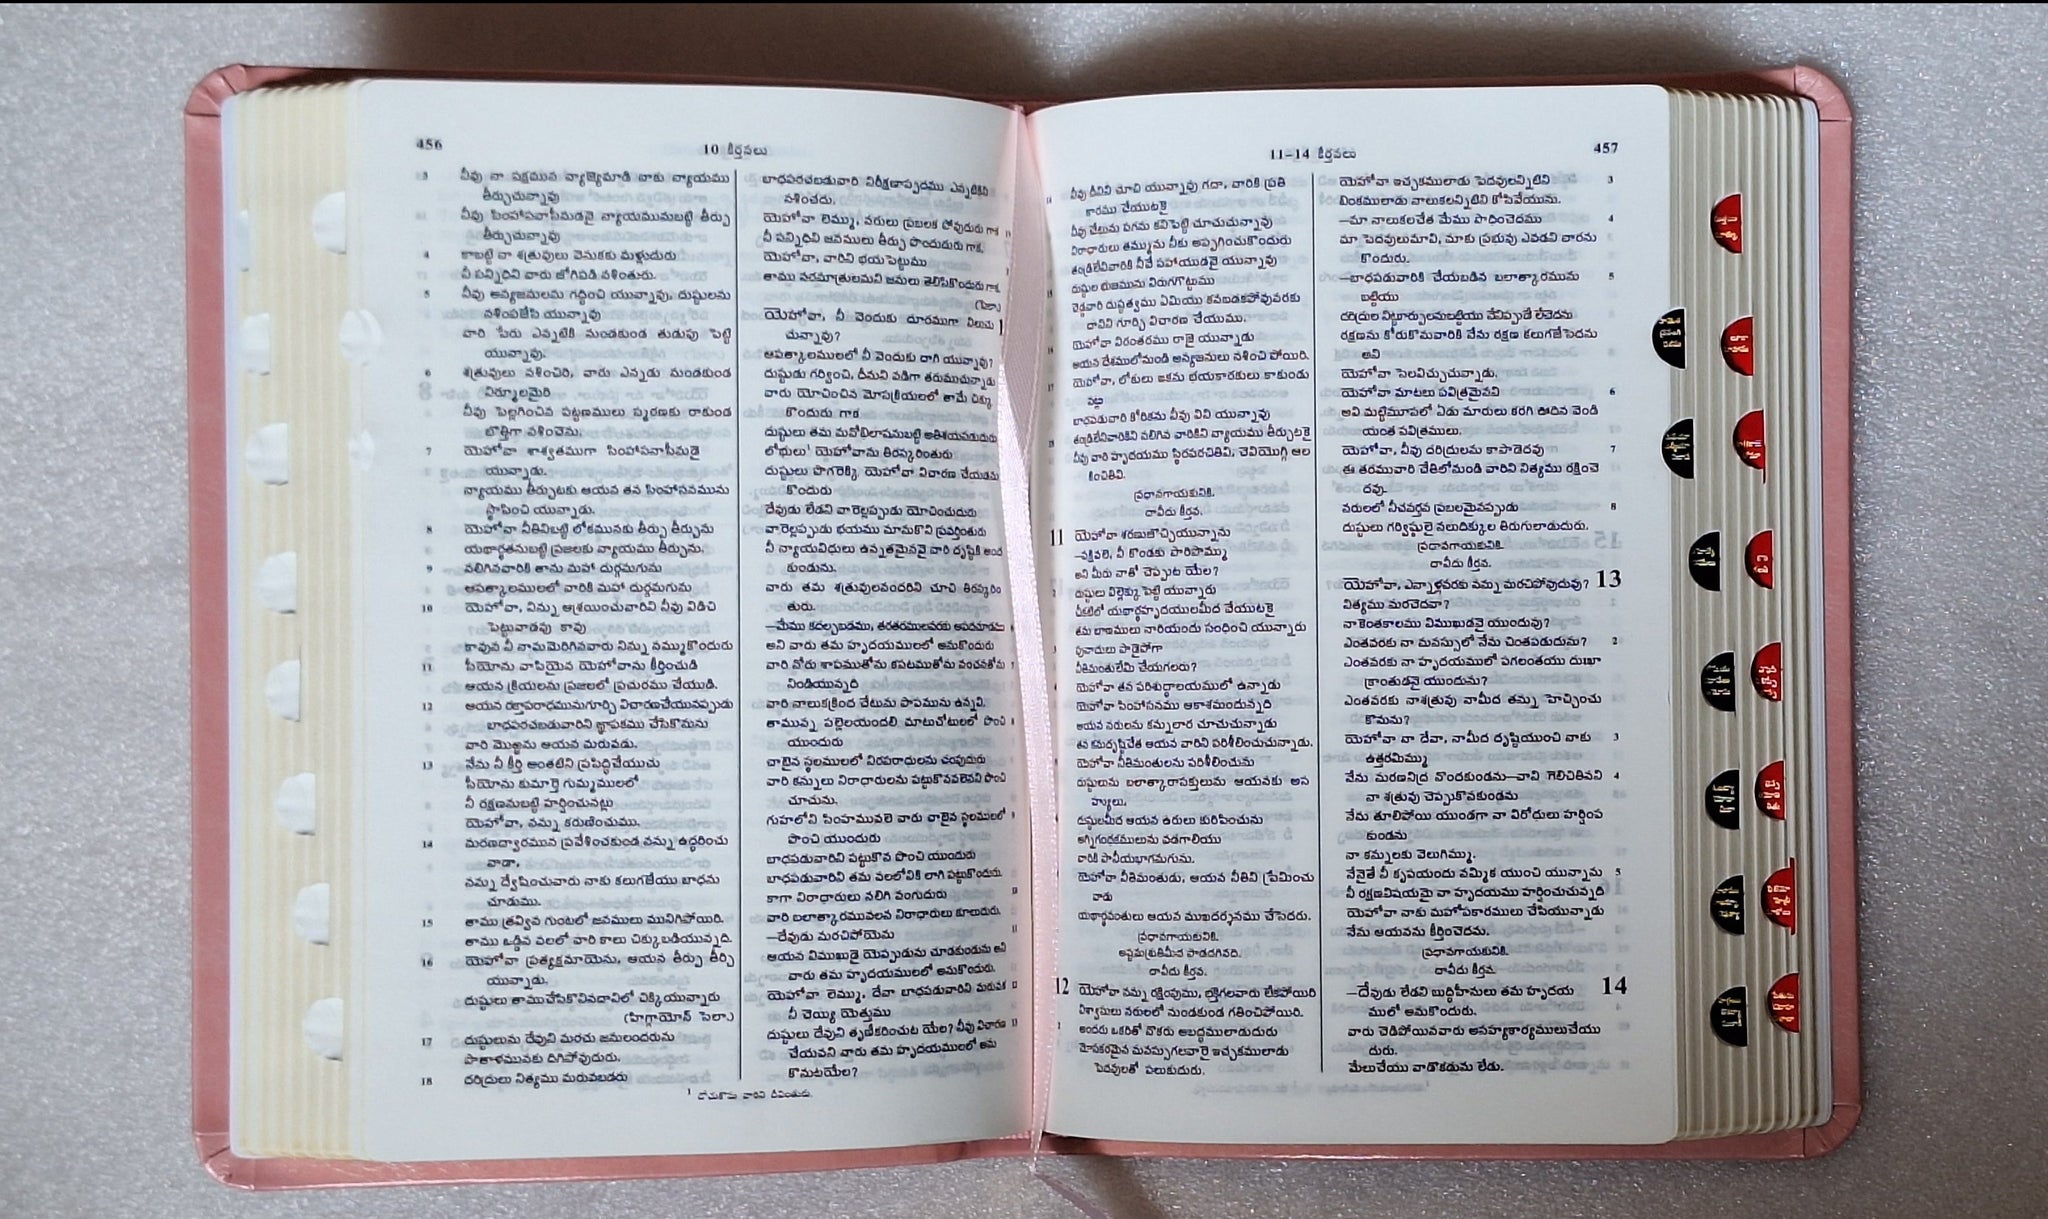 456
10 కీర్తనలు
3 నీవు నా పక్షమున వ్యాజ్యెమాడి నాకు న్యాయము
తీర్చుచున్నావు
నీవు సింహాసనాసీనుడవై న్యాయమునుబట్టి తీర్పు
తీర్చుచున్నావు
4 కాబట్టి నా శత్రువులు వెనుకకు మళ్లుదురు
నీ సన్నిధిని వారు జోగిపడి నశింతురు.
5 నీవు అన్యజనులను గద్దించి యున్నావు, దుష్టులను
నశింపజేసి యున్నావు
వారి పేరు ఎన్నటికి నుండకుండ తుడుపు పెట్టి
యున్నావు.
6 శత్రువులు నశించిరి, వారు ఎన్నడు నుండకుండ
నిర్మూలమైరి
నీవు పెల్లగించిన పట్టణములు స్మరణకు రాకుండ
బొత్తిగా నశించెను.
7 యెహోవా శాశ్వతముగా సింహాసనాసీనుడై
యున్నాడు.
న్యాయము తీర్చుటకు ఆయన తన సింహాసనమును
స్థాపించి యున్నాడు.
8 యెహోవా నీతినిబట్టి లోకమునకు తీర్పు తీర్చును
యథార్థతనుబట్టి ప్రజలకు న్యాయము తీర్చును.
9 నలిగినవారికి తాను మహా దుర్గమగును
ఆపత్కాలములలో వారికి మహా దుర్గమగును
10 యెహోవా, నిన్ను ఆశ్రయించువారిని నీవు విడిచి
పెట్టువాడవు కావు
కావున నీ నామమెరిగినవారు నిన్ను నమ్ముకొందురు
11 సీయోను వాసియైన యెహోవాను కీర్తించుడి
ఆయన క్రియలను ప్రజలలో ప్రచురము చేయుడి.
12 ఆయన రక్తాపరాధమునుగూర్చి విచారణచేయునప్పుడు
బాధపరచబడువారిని జ్ఞాపకము చేసికొనును
వారి మొఱ్ఱను ఆయన మరువడు.
13 నేను నీ కీర్తి అంతటిని ప్రసిద్ధిచేయుచు
సీయోను కుమార్తె గుమ్మములలో
నీ రక్షణనుబట్టి హర్షించునట్లు
యెహోవా, నన్ను కరుణించుము.
14 మరణద్వారమున ప్రవేశించకుండ నన్ను ఉద్ధరించు
వాడా,
నన్ను ద్వేషించువారు నాకు కలుగజేయు బాధను
చూడుము.
15 తాము త్రవ్విన గుంటలో జనములు మునిగిపోయిరి.
తాము ఒడ్డిన వలలో వారి కాలు చిక్కుబడియున్నది.
16 యెహోవా ప్రత్యక్షమాయెను, ఆయన తీర్పు తీర్చి
యున్నాడు.
దుష్టులు తాముచేసికొనినదానిలో చిక్కియున్నారు
(హిగ్గాయోన్ సెలా.)
17 దుష్టులును దేవుని మరచు జనులందరును
పాతాళమునకు దిగిపోవుదురు.
18 దరిద్రులు నిత్యము మరువబడరు
బాధపరచబడువారి నిరీక్షణాస్పదము ఎన్నటికిని
నశించదు.
యెహోవా లెమ్ము, నరులు ప్రబలక పోవుదురు గాక
నీ సన్నిధిని జనములు తీర్పు పొందుదురు గాక.
యెహోవా, వారిని భయపెట్టుము
తాము నరమాత్రులమని జనులు తెలిసికొందురు గాక
(సెలా.)
యెహోవా, నీ వెందుకు దూరముగా నిలుచు
చున్నావు?
ఆపత్కాలములలో నీ వెందుకు దాగి యున్నావు?
దుష్టుడు గర్వించి, దీనుని వడిగా తరుముచున్నాడు
వారు యోచించిన మోసక్రియలలో తామే చిక్కు
కొందురు గాక
దుష్టులు తమ మనోభిలాషనుబట్టి అతిశయపడుదురు
లోభులు¹ యెహోవాను తిరస్కరింతురు
దుష్టులు పొగరెక్కి యెహోవా విచారణ చేయడను
కొందురు
దేవుడు లేడని వారెల్లప్పుడు యోచించుదురు
వారెల్లప్పుడు భయము మానుకొని ప్రవర్తింతురు
నీ న్యాయవిధులు ఉన్నతమైనవై వారి దృష్టికి అంద
కుండును.
వారు తమ శత్రువులనందరిని చూచి తిరస్కరిం
తురు.
—మేము కదల్చబడము, తరతరములవరకు ఆపదచూడము
అని వారు తమ హృదయములలో అనుకొందురు
వారి నోరు శాపముతోను కపటముతోను వంచనతోను
నిండియున్నది
వారి నాలుకక్రింద చేటును పాపమును ఉన్నవి.
తామున్న పల్లెలయందలి మాటుచోటులలో పొంచి
యుందురు
చాటైన స్థలములలో నిరపరాధులను చంపుదురు
వారి కన్నులు నిరాధారులను పట్టుకొనవలెనని పొంచి
చూచును.
గుహలోని సింహమువలె వారు చాటైన స్థలములలో
పొంచి యుందురు
బాధపడువారిని పట్టుకొన పొంచి యుందురు
బాధపడువారిని తమ వలలోనికి లాగి పట్టుకొందురు.
కాగా నిరాధారులు నలిగి వంగుదురు
వారి బలాత్కారమువలన నిరాధారులు కూలుదురు.
—దేవుడు మరచిపోయెను
ఆయన విముఖుడై యెప్పుడును చూడకుండును అని
వారు తమ హృదయములలో అనుకొందురు.
యెహోవా లెమ్ము, దేవా బాధపడువారిని మరువక
నీ చెయ్యి యెత్తుము
దుష్టులు దేవుని తృణీకరించుట యేల? నీవు విచారణ
చేయవని వారు తమ హృదయములలో అను
కొనుటయేల?
¹ దోచుకొను వారిని దీవింతురు.
11–14 కీర్తనలు
457
నీవు దీనిని చూచి యున్నావు గదా, వారికి ప్రతి
కారము చేయుటకై
నీవు చేటును పగను కనిపెట్టి చూచుచున్నావు
నిరాధారులు తమ్మును నీకు అప్పగించుకొందురు
తండ్రిలేనివారికి నీవే సహాయుడవై యున్నావు
దుష్టుల భుజమును విరుగగొట్టుము
చెడ్డవారి దుష్టత్వము ఏమియు కనబడకపోవువరకు
దానిని గూర్చి విచారణ చేయుము.
యెహోవా నిరంతరము రాజై యున్నాడు
ఆయన దేశములోనుండి అన్యజనులు నశించి పోయిరి.
యెహోవా, లోకులు ఇకను భయకారకులు కాకుండు
నట్లు
బాధపడువారి కోరికను నీవు విని యున్నావు
తండ్రిలేనివారికిని నలిగిన వారికిని న్యాయము తీర్చుటకై
నీవు వారి హృదయము స్థిరపరచితివి, చెవియొగ్గి ఆల
కించితివి.
ప్రధానగాయకునికి.
దావీదు కీర్తన.
11 యెహోవా శరణుజొచ్చియున్నాను
—పక్షివలె, నీ కొండకు పారిపొమ్ము
అని మీరు నాతో చెప్పుట యేల?
2 దుష్టులు విల్లెక్కు పెట్టి యున్నారు
చీకటిలో యథార్థహృదయులమీద వేయుటకై
తమ బాణములు నారియందు సంధించి యున్నారు
3 పునాదులు పాడైపోగా
నీతిమంతులేమి చేయగలరు?
4 యెహోవా తన పరిశుద్ధాలయములో ఉన్నాడు
యెహోవా సింహాసనము ఆకాశమందున్నది
ఆయన నరులను కన్నులార చూచుచున్నాడు
తన కనుదృష్టిచేత ఆయన వారిని పరిశీలించుచున్నాడు.
యెహోవా నీతిమంతులను పరిశీలించును
దుష్టులును బలాత్కారాసక్తులును ఆయనకు అస
హ్యులు.
దుష్టులమీద ఆయన ఉరులు కురిపించును
అగ్నిగంధకములును వడగాలియు
వారికి పానీయభాగమగును.
యెహోవా నీతిమంతుడు, ఆయన నీతిని ప్రేమించు
వాడు
యథార్థవంతులు ఆయన ముఖదర్శనము చేసెదరు.
ప్రధానగాయకునికి.
అష్టమశ్రుతిమీద పాడదగినది.
దావీదు కీర్తన.
12 యెహోవా నన్ను రక్షింపుము, భక్తిగలవారు లేకపోయిరి
విశ్వాసులు నరులలో నుండకుండ గతించిపోయిరి.
అందరు ఒకరితో నొకరు అబద్ధములాడుదురు
మోసకరమైన మనస్సుగలవారై ఇచ్చకములాడు
పెదవులతో పలుకుదురు.
యెహోవా ఇచ్చకములాడు పెదవులన్నిటిని 3
బింకములాడు నాలుకలన్నిటిని కోసివేయును.
—మా నాలుకలచేత మేము సాధించెదము 4
మా పెదవులుమావి, మాకు ప్రభువు ఎవడని వారను
కొందురు.
—బాధపడువారికి చేయబడిన బలాత్కారమును 5
బట్టియు
దరిద్రుల నిట్టూర్పులనుబట్టియు నేనిప్పుడే లేచెదను
రక్షణను కోరుకొనువారికి నేను రక్షణ కలుగజేసెదను
అని
యెహోవా సెలవిచ్చుచున్నాడు.
యెహోవా మాటలు పవిత్రమైనవి 6
అవి మట్టిమూసలో ఏడు మారులు కరగి ఊదిన వెండి
యంత పవిత్రములు.
యెహోవా, నీవు దరిద్రులను కాపాడెదవు 7
ఈ తరమువారి చేతిలోనుండి వారిని నిత్యము రక్షించె
దవు.
నరులలో నీచవర్తన ప్రబలమైనప్పుడు 8
దుష్టులు గర్విష్ఠులై నలుదిక్కుల తిరుగులాడుదురు.
ప్రధానగాయకునికి.
దావీదు కీర్తన.
యెహోవా, ఎన్నాళ్లవరకు నన్ను మరచిపోవుదువు? 13
నిత్యము మరచెదవా?
నాకెంతకాలము విముఖుడవై యుందువు?
ఎంతవరకు నా మనస్సులో నేను చింతపడుదును? 2
ఎంతవరకు నా హృదయములో పగలంతయు దుఃఖా
క్రాంతుడనై యుందును?
ఎంతవరకు నాశత్రువు నామీద తన్ను హెచ్చించు
కొనును?
యెహోవా నా దేవా, నామీద దృష్టియుంచి నాకు 3
ఉత్తరమిమ్ము
నేను మరణనిద్ర నొందకుండను—వాని గెలిచితినని 4
నా శత్రువు చెప్పుకొనకుండను
నేను తూలిపోయి యుండగా నా విరోధులు హర్షింప
కుండను
నా కన్నులకు వెలుగిమ్ము.
నేనైతే నీ కృపయందు నమ్మిక యుంచి యున్నాను 5
నీ రక్షణవిషయమై నా హృదయము హర్షించుచున్నది
యెహోవా నాకు మహోపకారములు చేసియున్నాడు
నేను ఆయనను కీర్తించెదను.
ప్రధానగాయకునికి.
దావీదు కీర్తన.
—దేవుడు లేడని బుద్ధిహీనులు తమ హృదయ 14
ములో అనుకొందురు.
వారు చెడిపోయినవారు అసహ్యకార్యములుచేయు
దురు.
మేలుచేయు వాడొకడును లేడు.